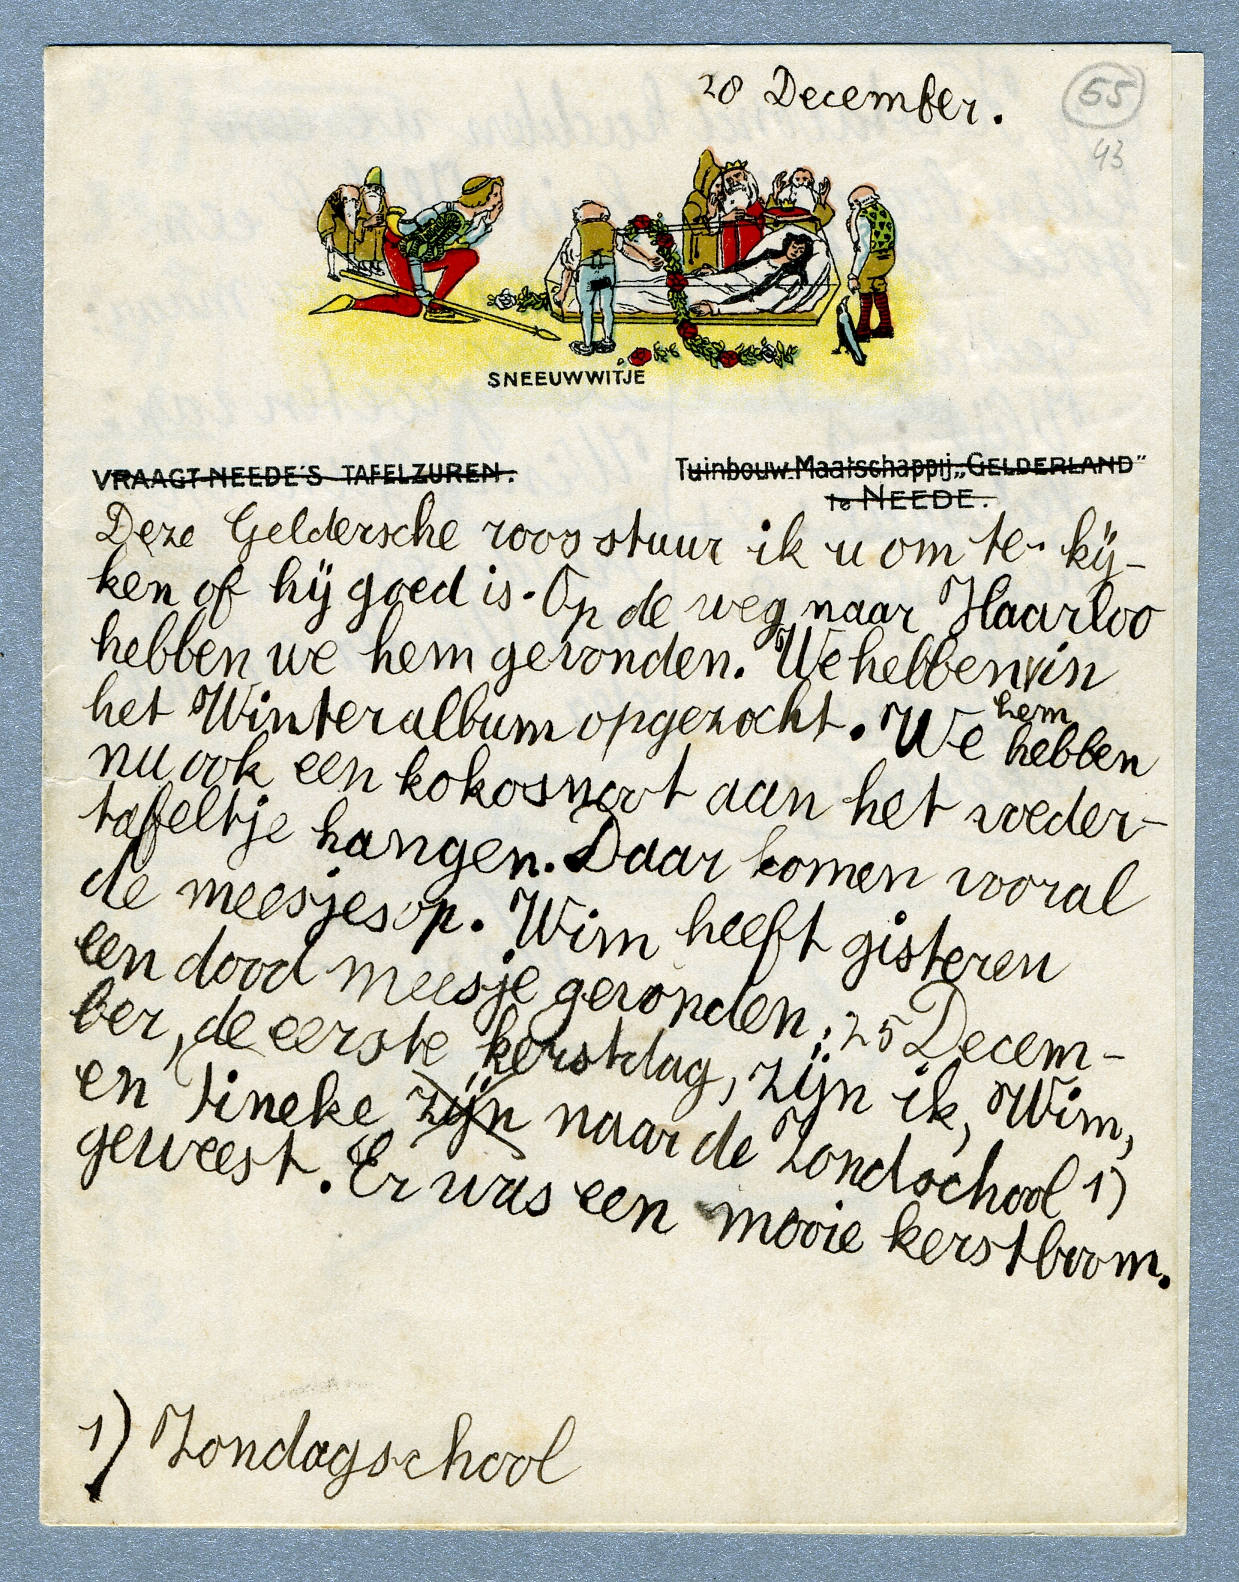 28 December.
55
43
SNEEUWWITJE
VRAAGT NEEDE'S TAFELZUREN.
Tuinbouw-Maatschappij „GELDERLAND”
te NEEDE.
Deze Geldersche roos stuur ik u om te kij-
ken of hij goed is. Op de weg naar Haarloo
hebben we hem gevonden. We hebben in
hem
het Winteralbum opgezocht. We hebben
nu ook een kokosnoot aan het voeder-
tafeltje hangen. Daar komen vooral
de meesjes op. Wim heeft gisteren
een dood meesje gevonden. 25 Decem-
ber, de eerste kerstdag, zijn ik, Wim,
en Tineke zijn naar de Zondschool 1)
geweest. Er was een mooie kerstboom.
1) Zondagschool